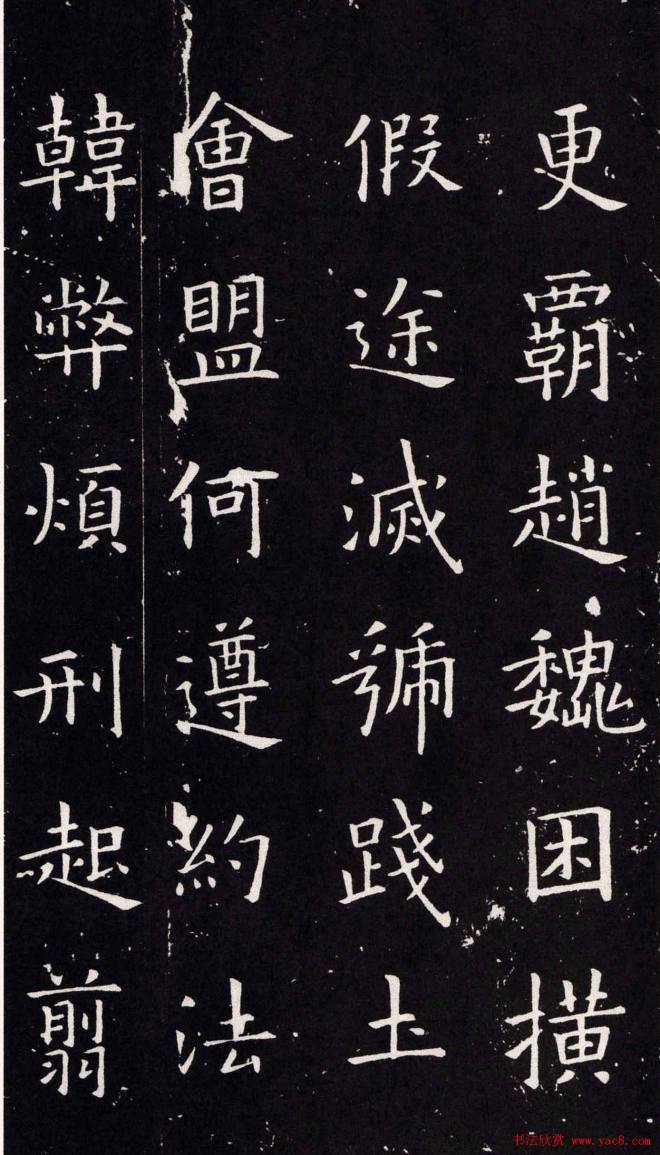 更霸趙魏困撗
假途滅號踐土
會盟何遵約法
韓弊煩刑起翦
书法欣赏 www.yac8.com